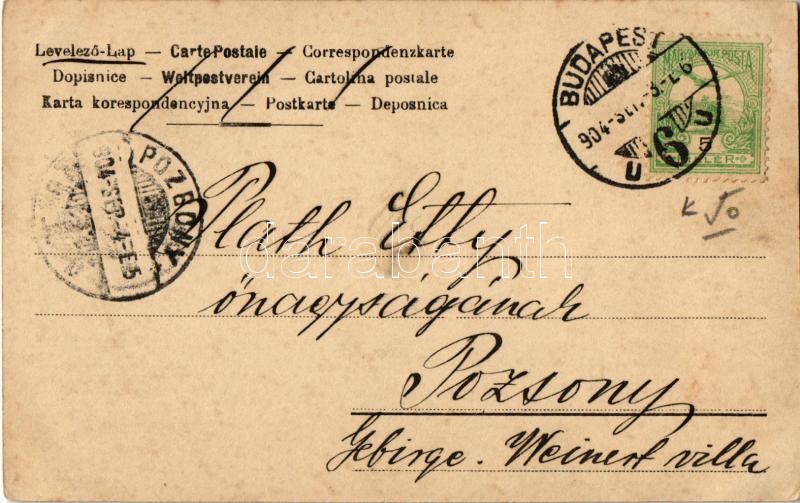 Levelező-Lap — Carte Postale — Correspondenzkarte
Dopisnice — Weltpostverein — Cartolina postale
Karta korespondencyjna — Postkarte — Deposnica
BUDAPEST
904-SEP.-3-E 6
6
U U
MAGYAR KIR. POSTA
5
POZSONY
904-SEP-4-E5
K 50
Plath Etty
őnagyságának
Pozsony
Gebirge. Weinert villa
darabanth